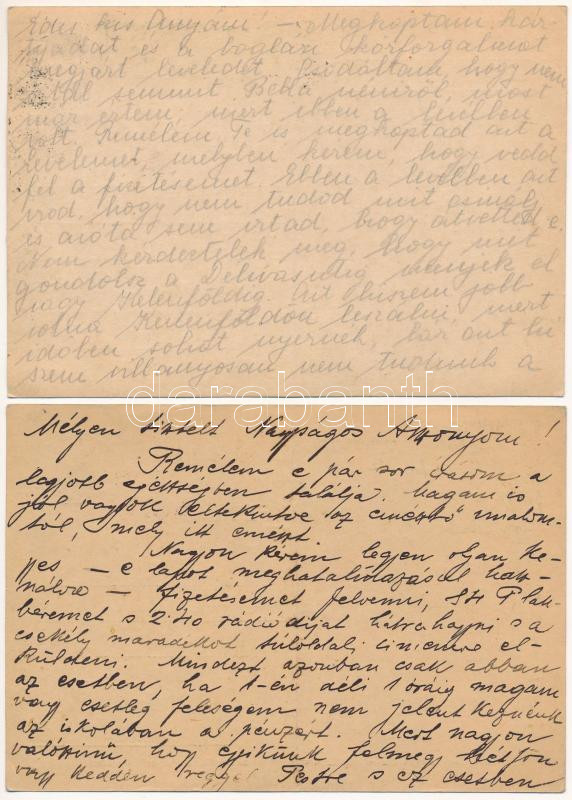 Édes kis Anyám! – Megkaptam kár-
tyádat és a boglári körforgalmat
megjárt leveledet. Csodáltam, hogy nem
írtál semmit Bella néniről, most
már értem, mert ebben a levélben
volt. Remélem Te is megkaptad azt a
levelemet melyben kérem, hogy vedd
fel a fizetésemet. Ebben a levélben azt
írod, hogy nem tudod mit csinálj
és azóta sem írtad, hogy átvetted e.
Nem kérdeztelek meg, hogy mit
gondolsz a Délivasútig menjek el
vagy Kelenföldig. Azt hiszem jobb
volna Kelenföldön leszállni mert
időben sokat nyernék, bár azt hi
szem villamosan nem tudnék a
darabanth
Mélyen tisztelt Nagyságos Asszonyom!
Remélem e pár sor írásom a
legjobb egészségben találja. Magam is
jól vagyok eltekintve az emésztő unalom-
tól, mely itt emészt.
Nagyon kérem legyen olyan ke-
gyes – e lapot meghatalmazásul hasz-
nálva – fizetésemet felvenni, 84 P lak-
béremet s 2.40 rádiódíjat hátrahagyni s a
csekély maradékot túloldali címemre el-
küldeni. Mindezt azonban csak abban
az esetben, ha 1-én déli 1 óráig magam
vagy esetleg feleségem nem jelentkeznénk
az iskolában a pénzért. Mert nagyon
valószínű, hogy egyikünk felmegy hétfőn
vagy kedden reggel Pestre s ez esetben